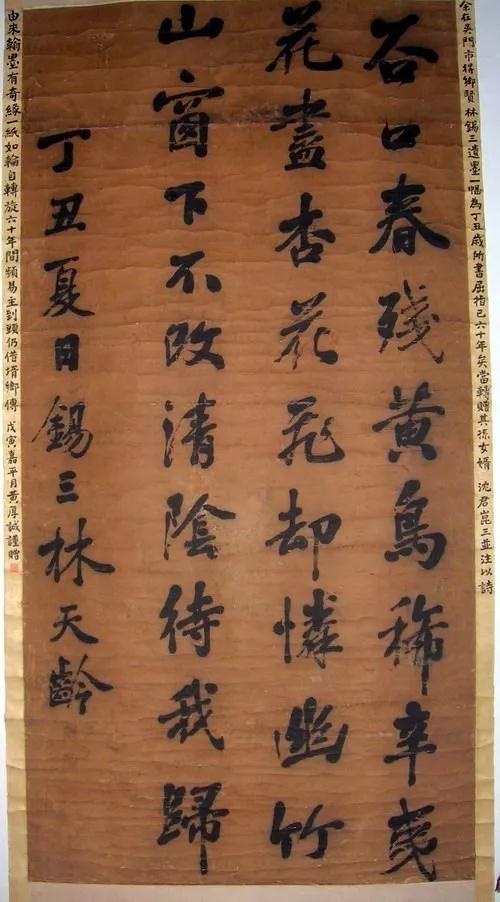 余在吳門市得鄉賢林錫三遺墨一幅為丁丑歲所書屈指已六十年矣當轉贈其孫女婿 沈君崑三並注以詩
谷口春殘黄鳥稀辛夷
花盡杏花飛却憐幽竹
山窗下不改清陰待我歸
丁丑夏日錫三林天齡
由來翰墨有奇緣一紙如輪自轉旋六十年間頻易主到頭仍借壻鄉傳 戊寅嘉平月黃厚誠謹贈